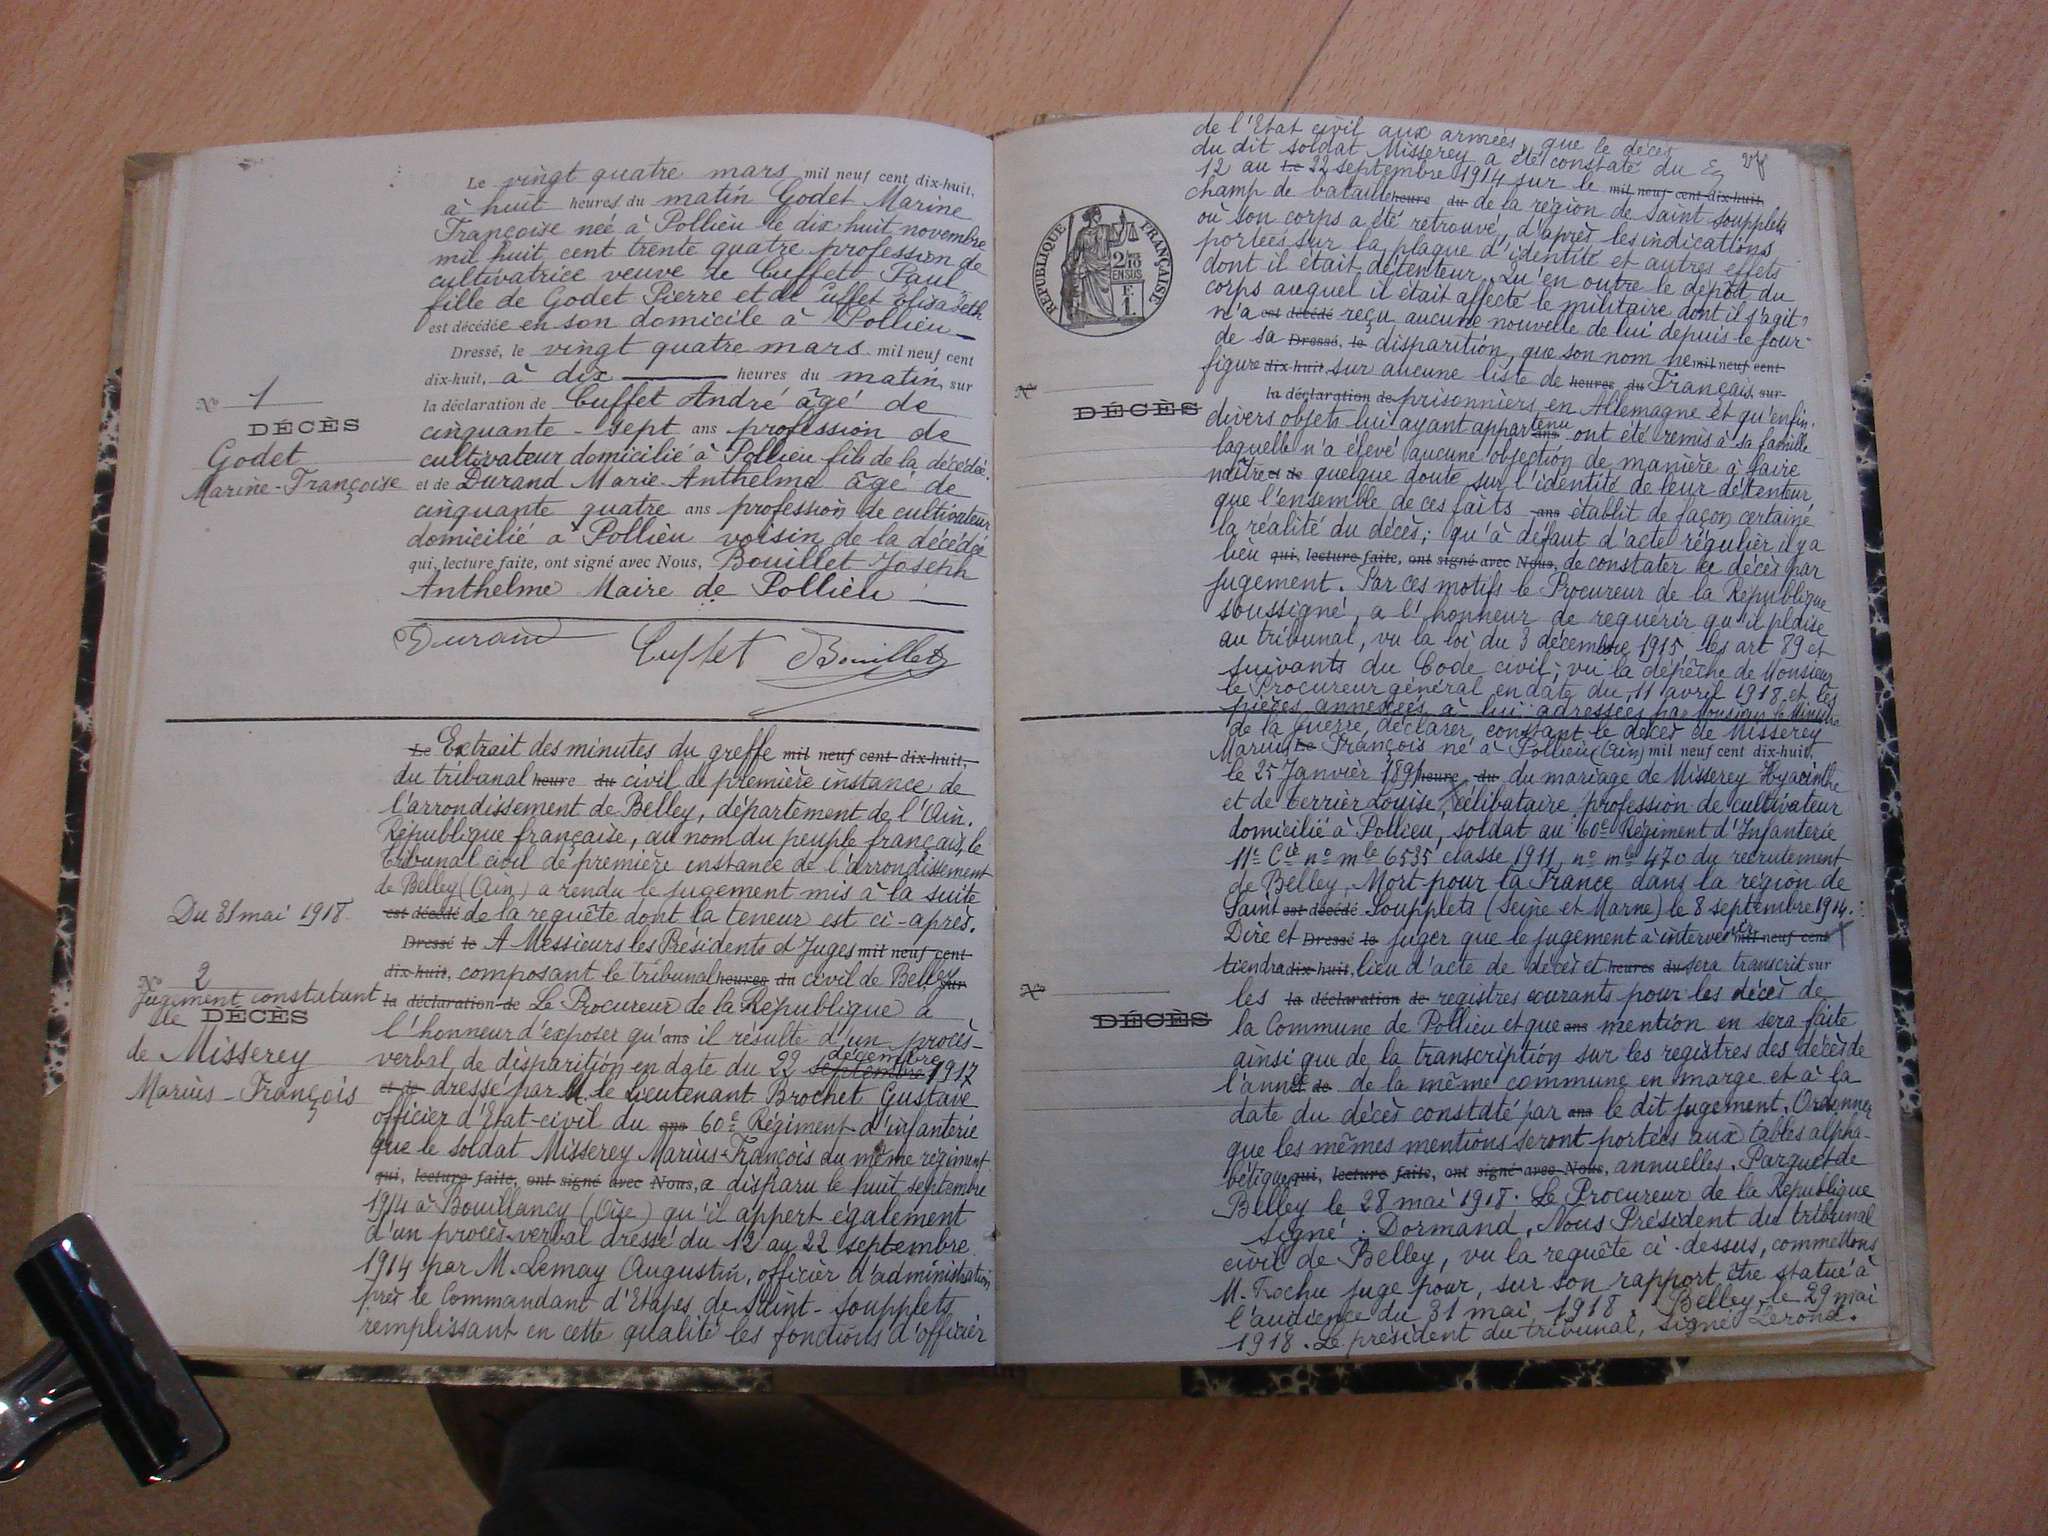 Le vingt quatre mars mil neuf cent dix-huit,
à huit heures du matin Godet Marine
Françoise née à Pollieu le dix huit novembre
mil huit cent trente quatre profession de
cultivatrice veuve de Cuffet Paul
fille de Godet Pierre et de Cuffet Elisabeth
est décédée en son domicile à Pollieu
Dressé, le vingt quatre mars mil neuf cent
dix-huit, à dix heures du matin, sur
la déclaration de Cuffet André âgé de
cinquante-sept ans profession de
cultivateur domicilié à Pollieu fils de la décédée
et de Durand Marie-Anthelme âgé de
cinquante quatre ans profession de cultivateur
domicilié à Pollieu voisin de la décédée
qui, lecture faite, ont signé avec Nous, Bouillet Joseph
Anthelme Maire de Pollieu
Durand Cuffet Bouillet
N° 1
DÉCÈS
Godet
Marine-Françoise
Le Extrait des minutes du greffe mil neuf cent dix-huit,
du tribunal heure du civil de première instance de
l'arrondissement de Belley, département de l'Ain.
République française, au nom du peuple français, le
Tribunal civil de première instance de l'arrondissement
de Belley (Ain) a rendu le jugement mis à la suite
est décédé de la requête dont la teneur est ci-après.
Dressé le A Messieurs les Présidents et Juges mil neuf cent
dix-huit, composant le tribunal heures du civil de Belley sur
la déclaration de Le Procureur de la République a
l'honneur d'exposer qu' ans il résulte d'un procès-
verbal de disparition en date du 22 septembre décembre 1917
et de dressé par M. le Lieutenant Brochet Gustave
officier d'Etat-civil du ans 60e Régiment d'infanterie
que le soldat Misserey Marius-François du même régiment
qui, lecture faite, ont signé avec Nous, a disparu le huit septembre
1914 à Bouillancy (Oise) qu'il appert également
d'un procès-verbal dressé du 12 au 22 septembre
1914 par M. Lemay Augustin, officier d'administration
près le Commandant d'Etapes de Saint-Soupplets
remplissant en cette qualité les fonctions d'officier
Du 31 mai 1918
N° 2
Jugement constatant
le DÉCÈS
de Misserey
Marius-François
de l'Etat civil aux armées, que le décès
du dit soldat Misserey a été constaté du
12 au Le 22 septembre 1914 sur le mil neuf cent dix-huit,
champ de bataille heure du de la région de Saint Soupplets
où son corps a été retrouvé, d'après les indications
portées sur la plaque d'identité et autres effets
dont il était détenteur. Qu'en outre le dépôt du
corps auquel il était affecté le militaire dont il s'agit
n'a est décédé reçu aucune nouvelle de lui depuis le jour
de sa Dressé, le disparition, que son nom ne mil neuf cent
figure dix-huit, sur aucune liste de heures du Français, sur
la déclaration de prisonniers en Allemagne et qu'enfin
divers objets lui ayant appartenu ans ont été remis à sa famille
laquelle n'a élevé aucune objection de manière à faire
naître et de quelque doute sur l'identité de leur détenteur,
que l'ensemble de ces faits ans établit de façon certaine
la réalité du décès; qu'à défaut d'acte régulier il y a
lieu qui, lecture faite, ont signé avec Nous, de constater le décès par
jugement. Par ces motifs le Procureur de la République
soussigné, a l'honneur de requérir qu'il plaise
au tribunal, vu la loi du 3 décembre 1915, les art 89 et
suivants du Code civil; vu la dépêche de Monsieur
le Procureur général en date du 11 avril 1918 et les
pièces annexées à lui adressées par Monsieur le Ministre
de la Guerre, déclarer constant le décès de Misserey
Marius Le François né à Pollieu (Ain) mil neuf cent dix-huit,
le 25 Janvier 1891 heure du du mariage de Misserey Hyacinthe
et de Terrier Louise, célibataire, profession de cultivateur
domicilié à Pollieu, soldat au 60e Régiment d'Infanterie
11e Cie n° mle 6535 classe 1911, n° mle 470 du recrutement
de Belley. Mort pour la France dans la région de
Saint est décédé Soupplets (Seine et Marne) le 8 septembre 1914.
Dire et Dressé le juger que le jugement à intervenir mil neuf cent
tiendra dix-huit, lieu d'acte de décès et heures du sera transcrit sur
les la déclaration de registres courants pour les décès de
la Commune de Pollieu et que ans mention en sera faite
ainsi que de la transcription sur les registres des décès de
l'année et de de la même commune en marge et à la
date du décès constaté par ans le dit jugement. Ordonner
que les mêmes mentions seront portées aux tables alpha-
bétiques qui, lecture faite, ont signé avec Nous, annuelles. Parquet de
Belley le 28 mai 1918. Le Procureur de la République
signé: Dormand. Nous Président du tribunal
civil de Belley, vu la requête ci-dessus, commettons
M. Rochu juge pour, sur son rapport être statué à
l'audience du 31 mai 1918. Belley le 29 mai
1918. Le président du tribunal, signé Lerond.
RÉPUBLIQUE FRANÇAISE
2/10
EN SUS
F.
1.
N°
DÉCÈS
N°
DÉCÈS